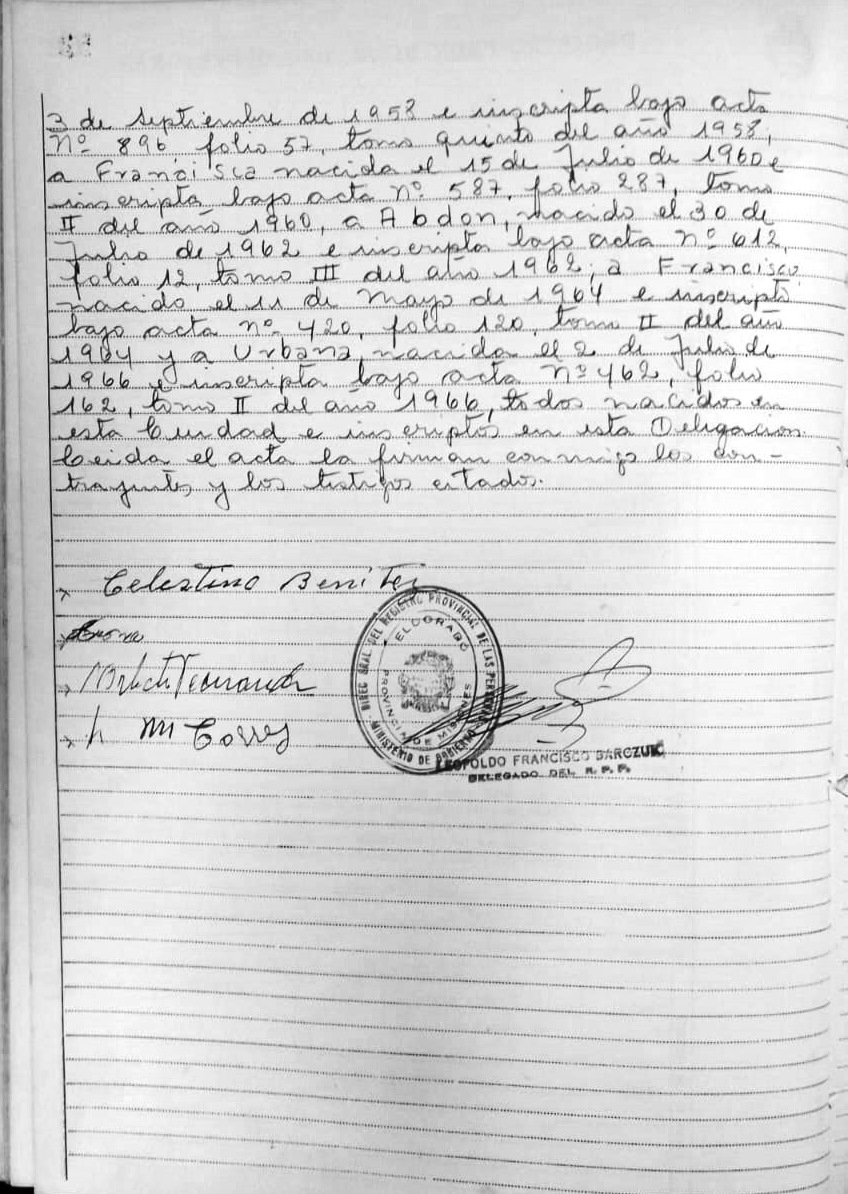 3 de septiembre de 1958 e inscripta bajo acta
Nº 896 folio 57, tomo quinto del año 1958,
a Francisca nacida el 15 de Julio de 1960 e
inscripta bajo acta nº 587, folio 287, tomo
II del año 1960, a Abdon, nacido el 30 de
Julio de 1962 e inscripta bajo acta nº 612,
folio 12, tomo III del año 1962; a Francisco
nacido el 11 de Mayo de 1964 e inscripto
bajo acta nº 420, folio 120, tomo II del año
1964 y a Urbana, nacida el 2 de Julio de
1966 e inscripta bajo acta nº 462, folio
162, tomo II del año 1966, todos nacidos en
esta Ciudad e inscriptos en esta Delegacion.
Leida el acta la firman conmigo los con-
trayentes y los testigos citados.
Celestino Benitez
DIREC. GRAL. DEL REGISTRO PROVINCIAL DE LAS PERSONAS
ELDORADO
PROVINCIA DE MISIONES
MINISTERIO DE GOBIERNO
LEOPOLDO FRANCISCO BARCZUK
DELEGADO DEL R. P. P.